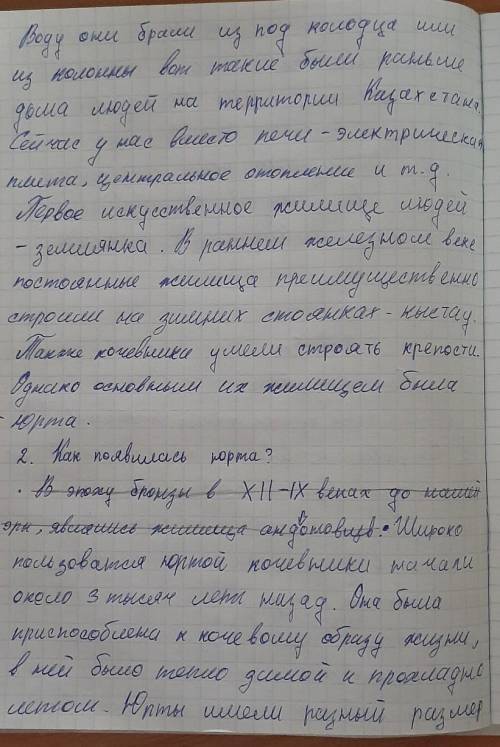 Воду они брали из под колодца или
из колонны вот такие были раньше
дома людей на территории Казахстана.
Сейчас у нас вместо печи - электрическая
плита, центральное отопление и т.д.
Первое искусственное жилище людей
- землянка. В раннем железном веке
постоянные жилища преимущественно
строили на зимних стоянках - кыстау.
Также кочевники умели строять крепости.
Однако основным их жилищем была
- юрта.
2. Как появилась юрта?
. В эпоху бронзы в XII-IX веках до нашей
эры, явились жилища андотовцев. • Широко
пользоватся юртой кочевники начали
около 3 тысяч лет назад. Она была
приспособлена к кочевому образу жизни,
в ней было тепло зимой и прохладно
летом. Юрты имели разный размер